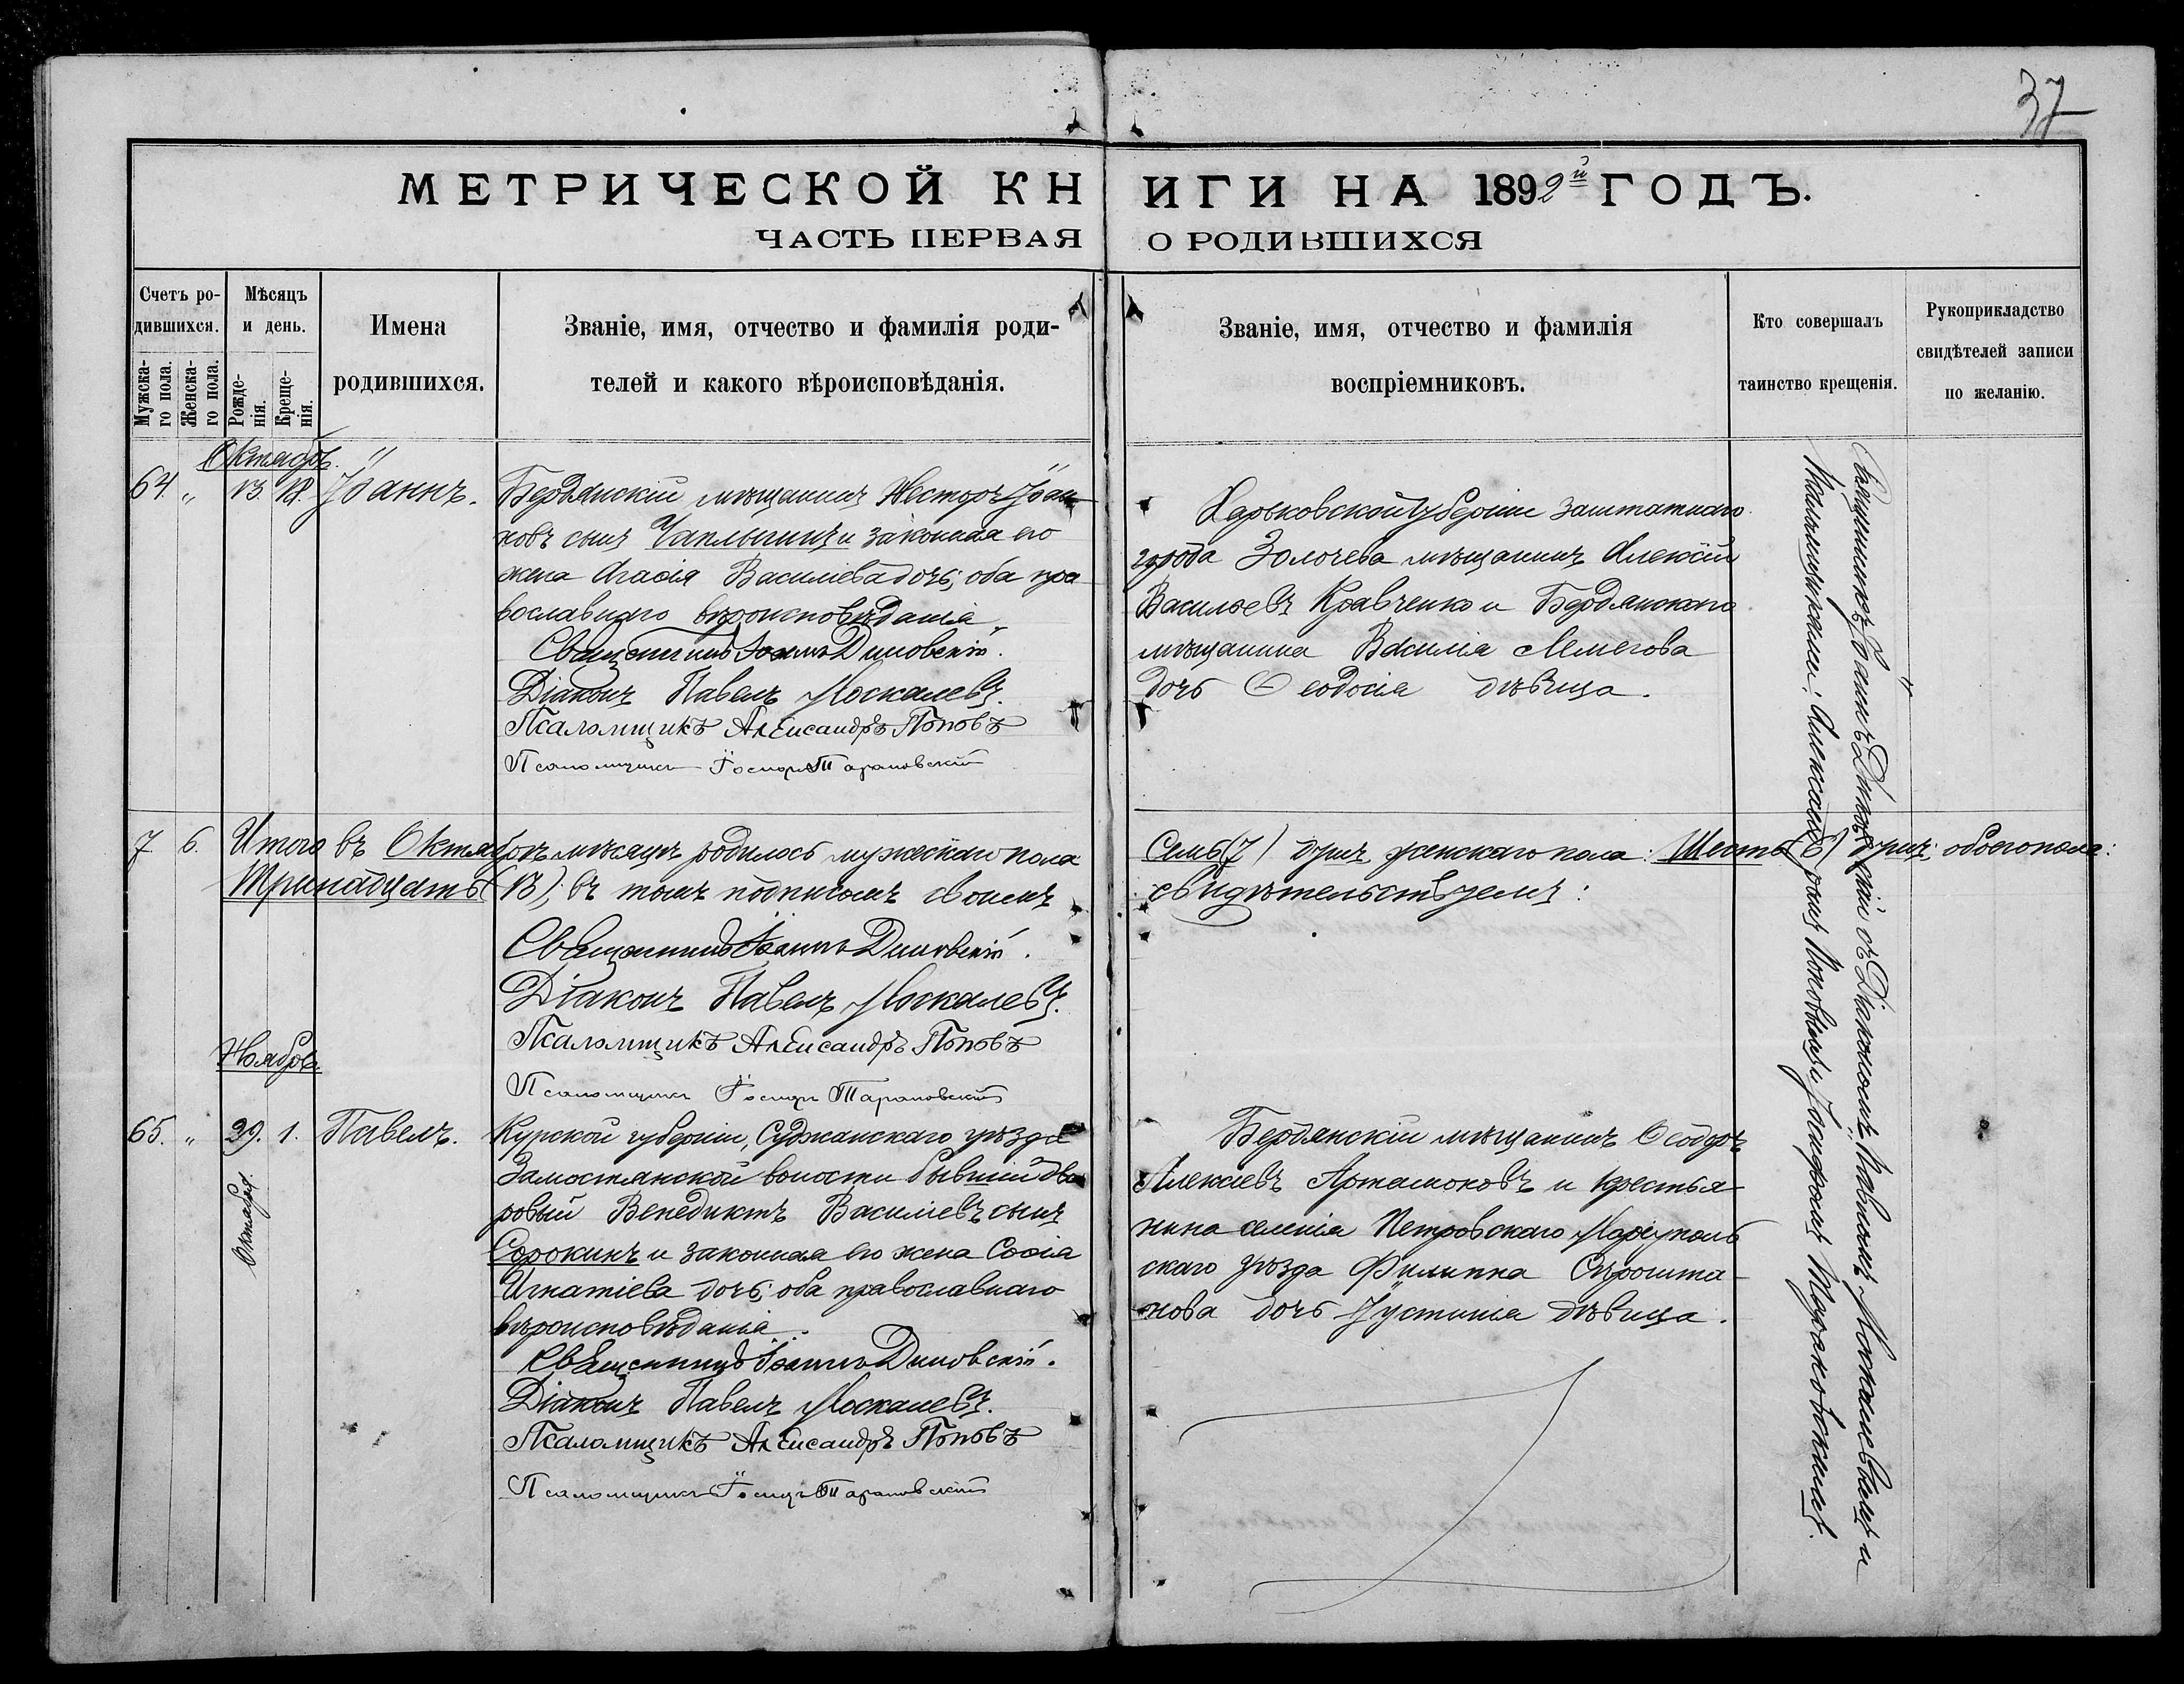 37
МЕТРИЧЕСКОЙ КНИГИ НА 1892й ГОДЪ.
ЧАСТЬ ПЕРВАЯ О РОДИВШИХСЯ
Счетъ родившихся.
Мужскаго пола.
Женскаго пола.
Мѣсяцъ и день.
Рожденія.
Крещенія.
Имена
родившихся.
Званіе, имя, отчество и фамилія роди-
телей и какого вѣроисповѣданія.
Званіе, имя, отчество и фамилія
воспріемниковъ.
Кто совершалъ
таинство крещенія.
Рукоприкладство
свидѣтелей записи
по желанію.
Октябрь.
64. " 13. 18. Іоаннъ.
Бердянскій мѣщанинъ Несторъ Іоан-
новъ сынъ Чаплыгинъ и законная его
жена Агафія Василіева дочь; оба пра
вославнаго вѣроисповѣданія.
Священникъ Іоаннъ Диковскій.
Діаконъ Павелъ Москалевъ.
Псаломщикъ Александръ Поповъ
Псаломщикъ Іосифъ Тарановскій
Харьковской губерніи заштатнаго
города Золочева мѣщанинъ Алексій
Васильевъ Кравченко и Бердянскаго
мѣщанина Василія
дочь Ѳеодосія дѣвица.
7. 6. Итого въ Октябрѣ мѣсяцѣ родилось мужескаго пола
Семь (7) душъ женскаго пола: Шесть (6) душъ; обоего пола:
Тринадцать (13); въ томъ подписомъ своимъ
свидѣтельствуемъ:
Священникъ Іоаннъ Диковскій.
Діаконъ Павелъ Москалевъ.
Псаломщикъ Александръ Поповъ
Псаломщикъ Іосифъ Тарановскій
Ноябрь.
65. " 29. 1. Павелъ.
Октября.
Курской губерніи, Суджанскаго уѣзда
Замостянской волости бывшій дво
ровый Венедиктъ Василіевъ сынъ
Сорокинъ и законная его жена Софія
Игнатіева дочь; оба православнаго
вѣроисповѣданія.
Священникъ Іоаннъ Диковскій.
Діаконъ Павелъ Москалевъ.
Псаломщикъ Александръ Поповъ
Псаломщикъ Іосифъ Тарановскій
Бердянскій мѣщанинъ Ѳеодоръ
Алексѣевъ Артамоновъ и крестья-
нина селенія Петровскаго Маріуполь
скаго уѣзда Филиппа
дочь Іустинія дѣвица.
Священникъ Іоаннъ Диковскій съ Діакономъ Павломъ Москалевымъ и
Псаломщиками: Александромъ Поповымъ и Іосифомъ Тарановскимъ.